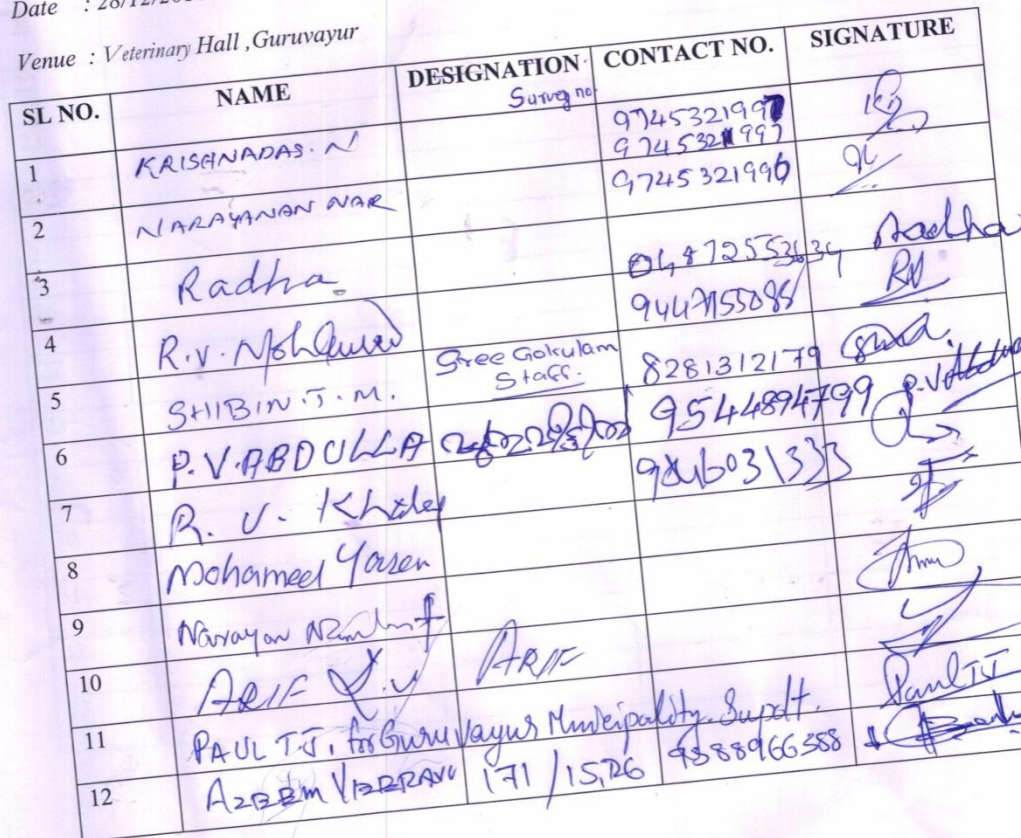 Date : 28/12/20
Venue : Veterinary Hall ,Guruvayur
SL NO. NAME DESIGNATION CONTACT NO. SIGNATURE
Survey no.
1 KRISHNADAS. N 9745321997
9745321997
2 NARAYANAN NAR 9745321996
3 Radha 04872553634 Radha
4 R.V. 9447155088
5 SHIBIN.T.M. Sree Gokulam Staff. 8281312179
6 P.V.ABDULLA 9544894799 P.V Abdu
7 R. V. 9846031333
8 Mohameed Yaseen
9 Narayan
10 ARIF K.V ARIF
11 PAUL T.J. for Guruvayur Municipality. Supdt. Paul TJ
12 AZEEM 171/15,26 9388966388